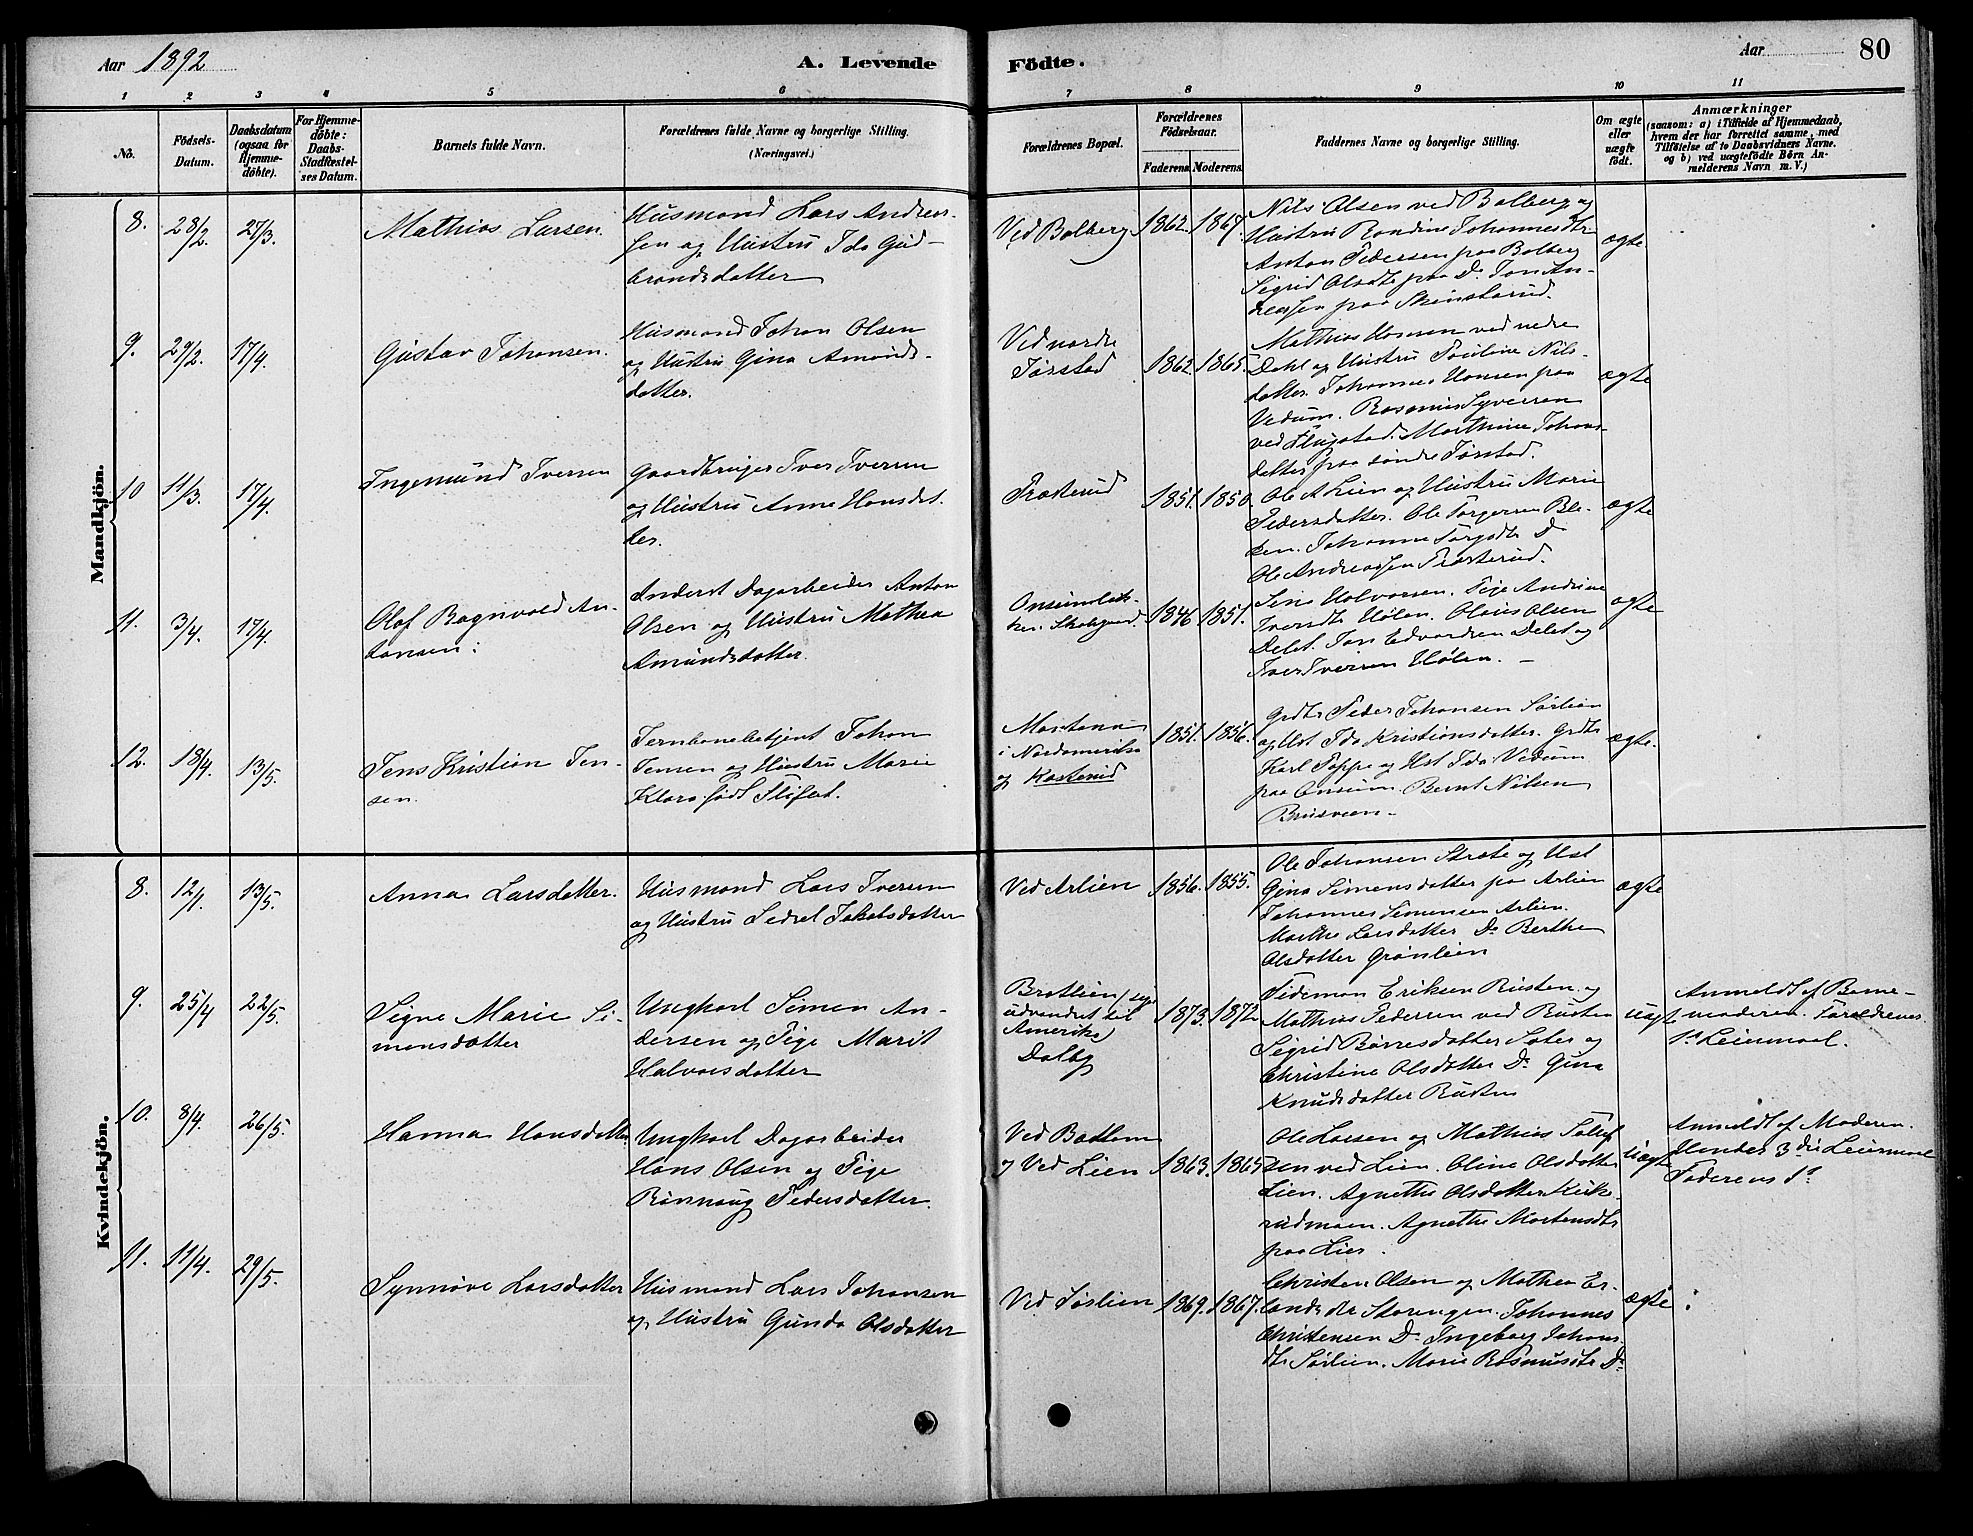 Aar 1892
A. Levende
Födte.
Aar
80
1 2 3 4 5 6 7 8 9 10 11
No.
Födsels-
Datum.
Daabsdatum
(ogsaa for
Hjemme-
döbte).
For Hjemme-
döbte:
Daabs-
Stadfæstel-
ses Datum.
Barnets fulde Navn.
Forældrenes fulde Navne og borgerlige Stilling.
(Næringsvei.)
Forældrenes Bopæl.
Forældrenes
Födselsaar.
Faderens. Moderens.
Faddernes Navne og borgerlige Stilling.
Om ægte
eller
uægte
födt.
Anmærkninger
(saasom: a) i Tilfælde af Hjemmedaab,
hvem der har forrettet samme, med
Tilföielse af to Daabsvidners Navne.
og b) ved uægtefödte Börn An-
melderens Navn m. V.)
Mandkjön.
8. 28/2. 27/3.
Mathias Larsen.
Husmand Lars Andrea-
sen og Hustru Ida Gud-
brandsdatter
Ved Bolberg
1862. 1867.
Nils Olsen ved Bolberg og
Hustru Randine Johannesdtr
Anton Pedersen paa Bolberg
Sigrid Olsdtr paa Do. Jon An-
dreasen paa
ægte
9. 29/2. 17/4.
Gustav Johansen.
Husmand Johan Olsen
og Hustru Gina Amunds-
datter.
Ved nordre
Jørstad
1862. 1865.
Mathias Hansen ved nedre
Dahl og Hustru Pauline Nils-
datter. Johannes Hansen paa
Vedum. Rasmus Syversen
ved Flugstad. Marthine Johans-
datter paa søndre Jørstad.
ægte
10 11/3. 17/4.
Ingemund Iversen
Gaardbruger Iver Iversen
og Hustru Anne Hansdat-
ter.
Prosterud
1851. 1850.
Ole A Lien og Hustru Marie
Pedersdatter. Ole Torgersen Ble-
ken. Johanne Torgsdtr Do
Ole Andreassen Prosterud.
ægte
11. 3/4. 17/4.
Olaf Ragnvald An-
tonsen.
Inderst Dagarbeider Anton
Olsen og Hustru Mathea
Amundsdatter.
1846 1851.
Jens Halvorsen. Pige Andrine
Iversdtr Hølen. Olaus Olsen
Delet. Jon Edvardsen Delet og
Iver Iversen Hølen. –
ægte
12. 18/4. 13/5.
Jens Kristian Jen-
sen.
Jernbanebetjent Johan
Jensen og Hustru Marie
Klara født
Montana
i Nordamerika
og Kasterud
1851. 1856.
Grdbr Peder Johansen Sørlien
og Hst Ida Kristiansdatter. Grdbr
Karl Poppe og Hst Ida Vedum
paa Onsum. Bernt Nilsen
Brusveen.
ægte.
Kvindekjön.
8. 12/1. 13/5.
Anna Larsdatter.
Husmand Lars Iversen
og Hustru Sidsel Jakobsdatter
Ved Arlien
1856. 1855.
Ole Johansen Stræte og Hst
Gina Simensdatter paa Arlien
Johannes Simensen Arlien.
Marthe Larsdatter Do Berthe
Olsdatter Grønlien
ægte
9. 25/4 22/5.
Signe Marie Si-
mensdatter
Ungkarl Simen An-
dersen og Pige Marit
Halvorsdatter
Bratlien / siges
udvandret til
Amerika)
Dalby
1873. 1872
Tideman Eriksen Rusten og
Mathias Pedersen ved Rusten
Sigrid Børresdatter Sater og
Christine Olsdatter Do Gina
Knudsdatter Rusten
uægte
Anmeldt af Barne-
moderen. Forældrenes
1ste Leiermaal.
10. 8/4. 26/5.
Hanna Hansdatter
Ungkarl Dagarbeider
Hans Olsen og Pige
Rønnaug Pedersdatter.
Ved Badlem
og Ved Lien
1863. 1865
Ole Larsen og Mathias Tollef-
sen ved Lien. Oline Olsdatter
Lien. Agnethe Olsdatter Kirke-
rudmoen. Agnethe Mortensdtr
paa Lier.
Uægte
Anmeldt af Moderen.
Hendes 3die Leiermaal
Faderens 1ste
11. 11/4. 29/5.
Synnøve Larsdatter
Husmand Lars Johansen
og Hustru Gunda Olsdatter
Ved Sørlien
1869. 1867.
Christen Olsen og Mathea Er-
landsdtr Storengen. Johannes
Christensen Do. Ingeborg Johans-
dtr Sørlien. Marie Rasmusdtr Do
ægte